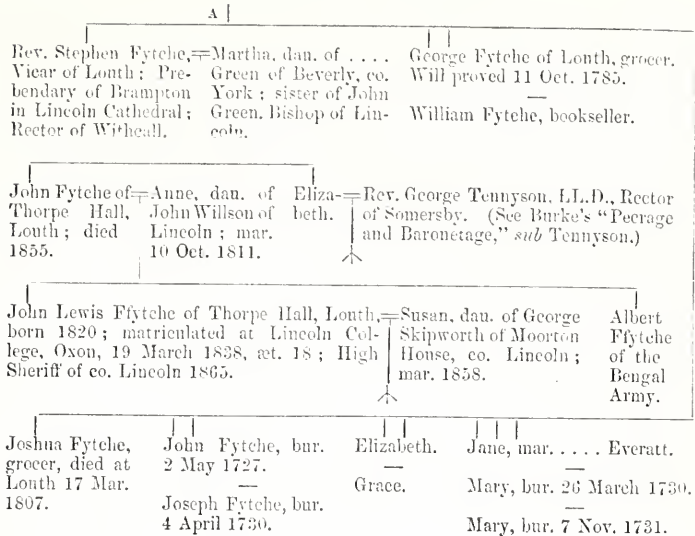 A
Rev. Stephen Fytche,=Martha, dan. of . . . .
Vicar of Louth; Pre-
bendary of Brampton
in Lincoln Cathedral;
Rector of Withcall.
Green of Beverly, co.
York; sister of John
Green, Bishop of Lin-
coln.
George Fytche of Louth, grocer.
Will proved 11 Oct. 1785.
—
William Fytche, bookseller.
John Fytche of=Anne, dau. of
Thorpe Hall,
Louth; died
1855.
John Willson of
Lincoln; mar.
10 Oct. 1811.
Eliza-=Rev. George Tennyson, LL.D., Rector
beth.
of Somersby. (See Burke's "Peerage
and Baronetage," sub Tennyson.)
John Lewis Ffytche of Thorpe Hall, Louth,=Susan, dau. of George
born 1820; matriculated at Lincoln Col-
lege, Oxon, 19 March 1838, æt. 18; High
Sheriff of co. Lincoln 1865.
Skipworth of Moorton
House, co. Lincoln;
mar. 1858.
Albert
Ffytche
of the
Bengal
Army.
Joshua Fytche,
grocer, died at
Louth 17 Mar.
1807.
John Fytche, bur.
2 May 1727.
—
Joseph Fytche, bur.
4 April 1730.
Elizabeth.
—
Grace.
Jane, mar. . . . . . Everatt.
—
Mary, bur. 26 March 1730.
—
Mary, bur. 7 Nov. 1731.